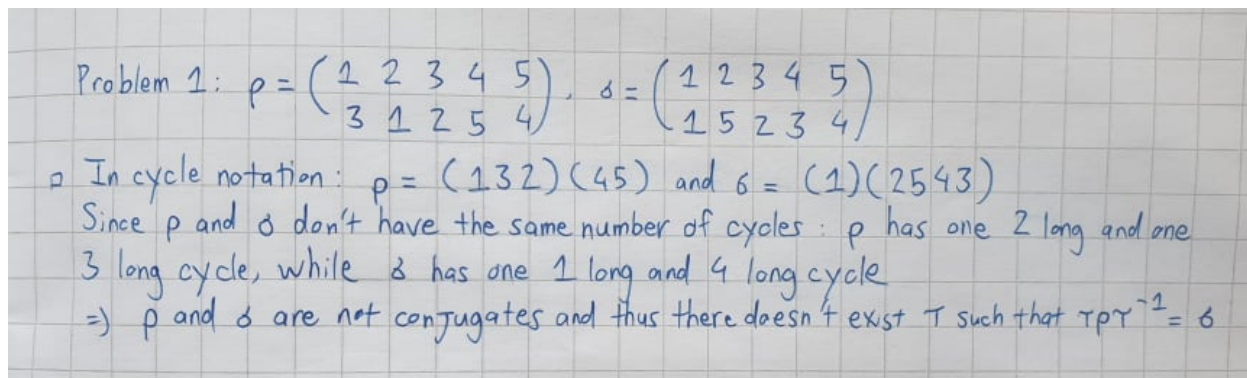 Problem 1: ρ = (1 2 3 4 5), σ = (1 2 3 4 5)
3 1 2 5 4 1 5 2 3 4
▫ In cycle notation: ρ = (132)(45) and σ = (1)(2543)
Since ρ and σ don't have the same number of cycles: ρ has one 2 long and one
3 long cycle, while σ has one 1 long and 4 long cycle
=> ρ and σ are not conjugates and thus there doesn't exist τ such that τρτ⁻¹ = σ